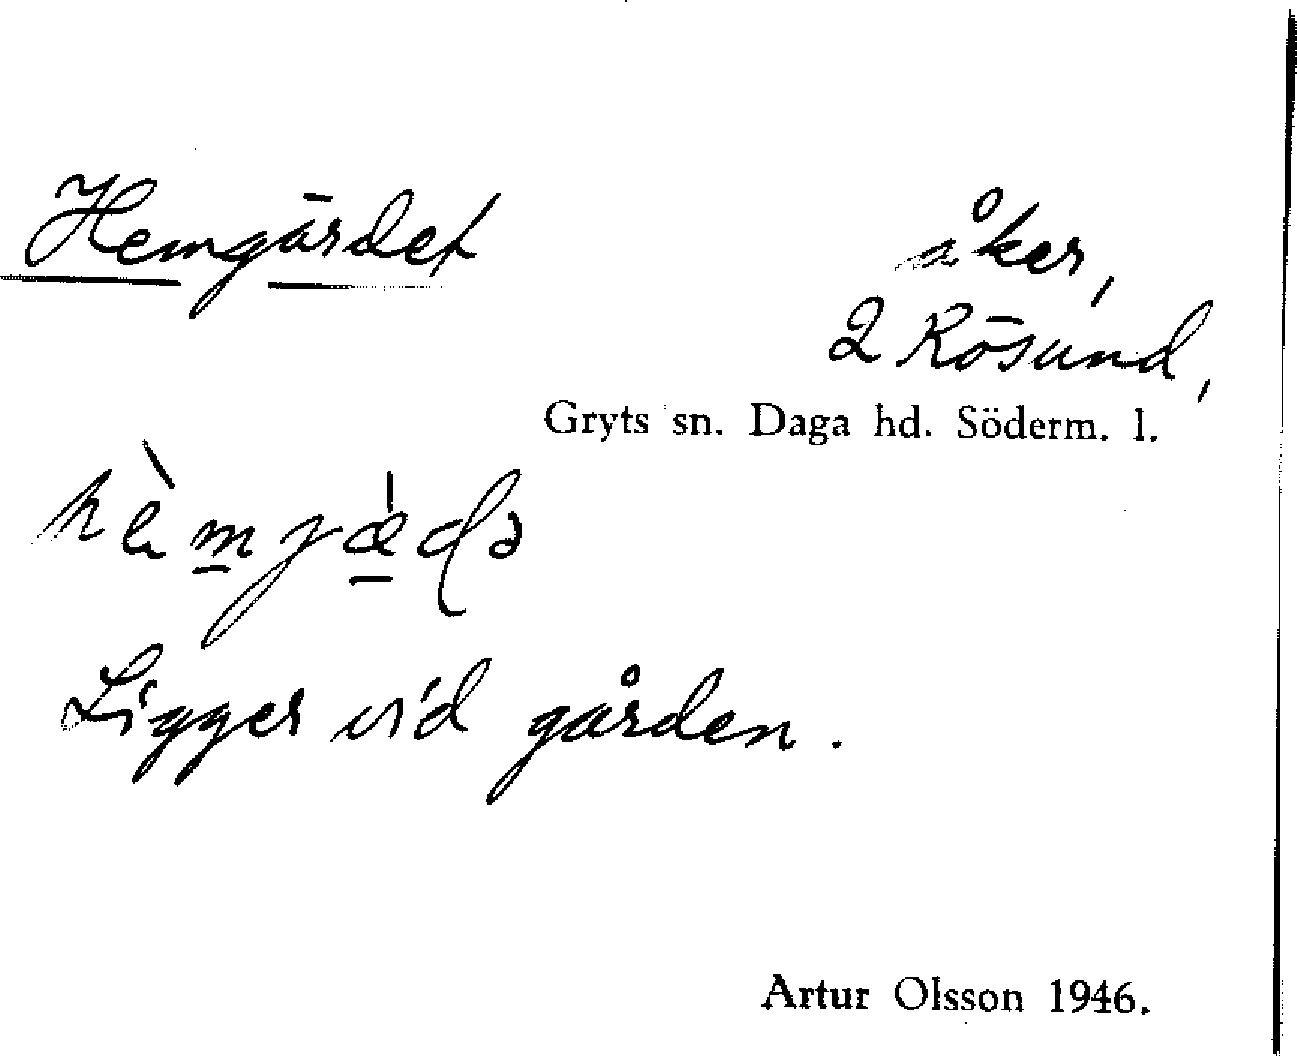 Hemgärdet
åker,
2 Rösund,
Gryts sn. Daga hd. Söderm. l.
hèmjædə
Ligger vid gården.
Artur Olsson 1946.